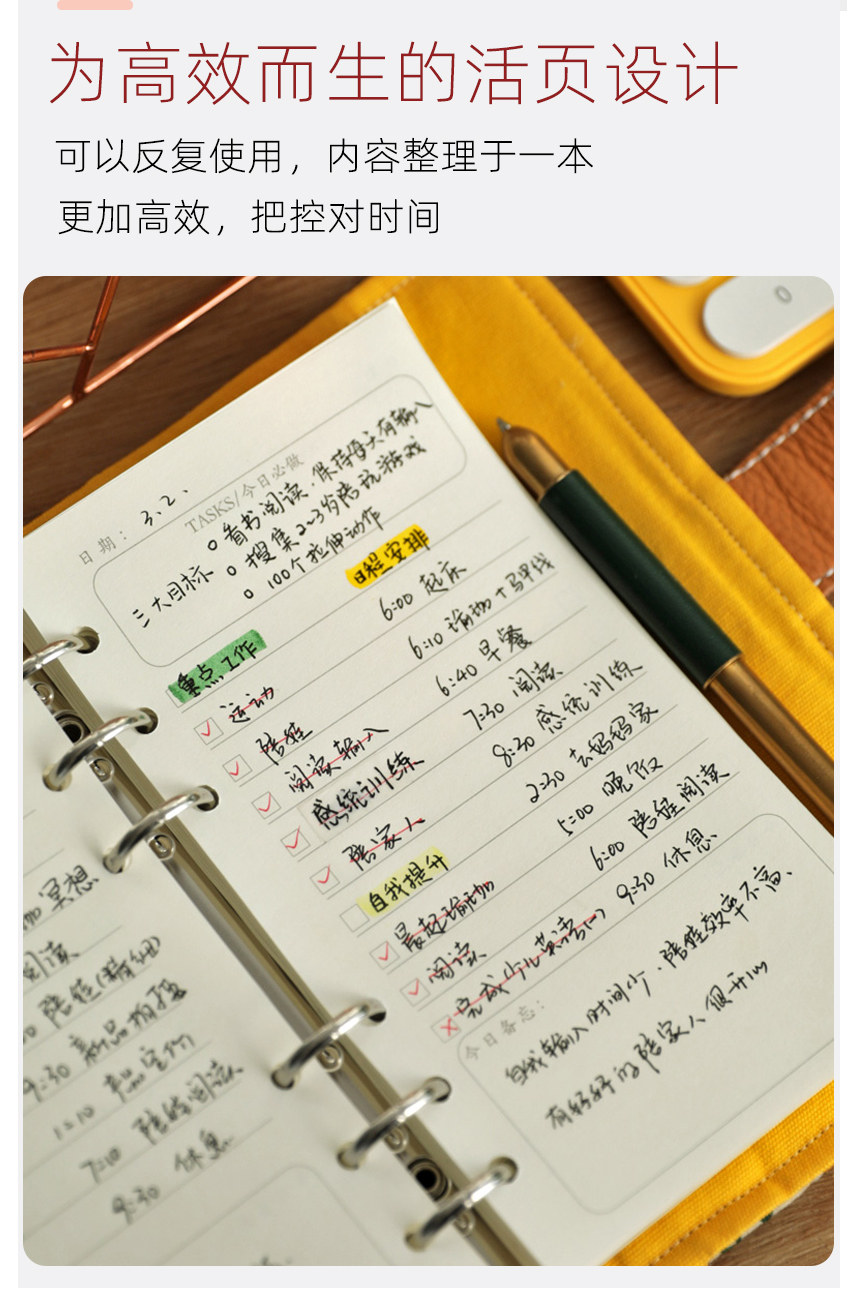 为高效而生的活页设计
可以反复使用，内容整理于一本
更加高效，把控对时间
0
日期： 3.2、
TASKS/今日必做
三大目标
○ 看书阅读·保持每天有输入
○ 搜集2~3岁陪玩游戏
○ 100个拉伸动作
重点工作
运动
陪娃
阅读输入
感统训练
陪家人
自我提升
晨起瑜珈
阅读
完成少儿英语(一)
日程安排
6:00 起床
6:10 瑜珈+马甲线
6:40 早餐
7:30 阅读
8:30 感统训练
2:30 去妈妈家
5:00 晚饭
6:00 陪娃阅读
9:30 休息
今日备忘：
自我输入时间少·陪娃效率不高、
有好好的陪家人很开心
冥想
阅读
陪娃(精细)
9:30 新品拍摄
1:10
7:10 陪娃阅读
9:30 休息